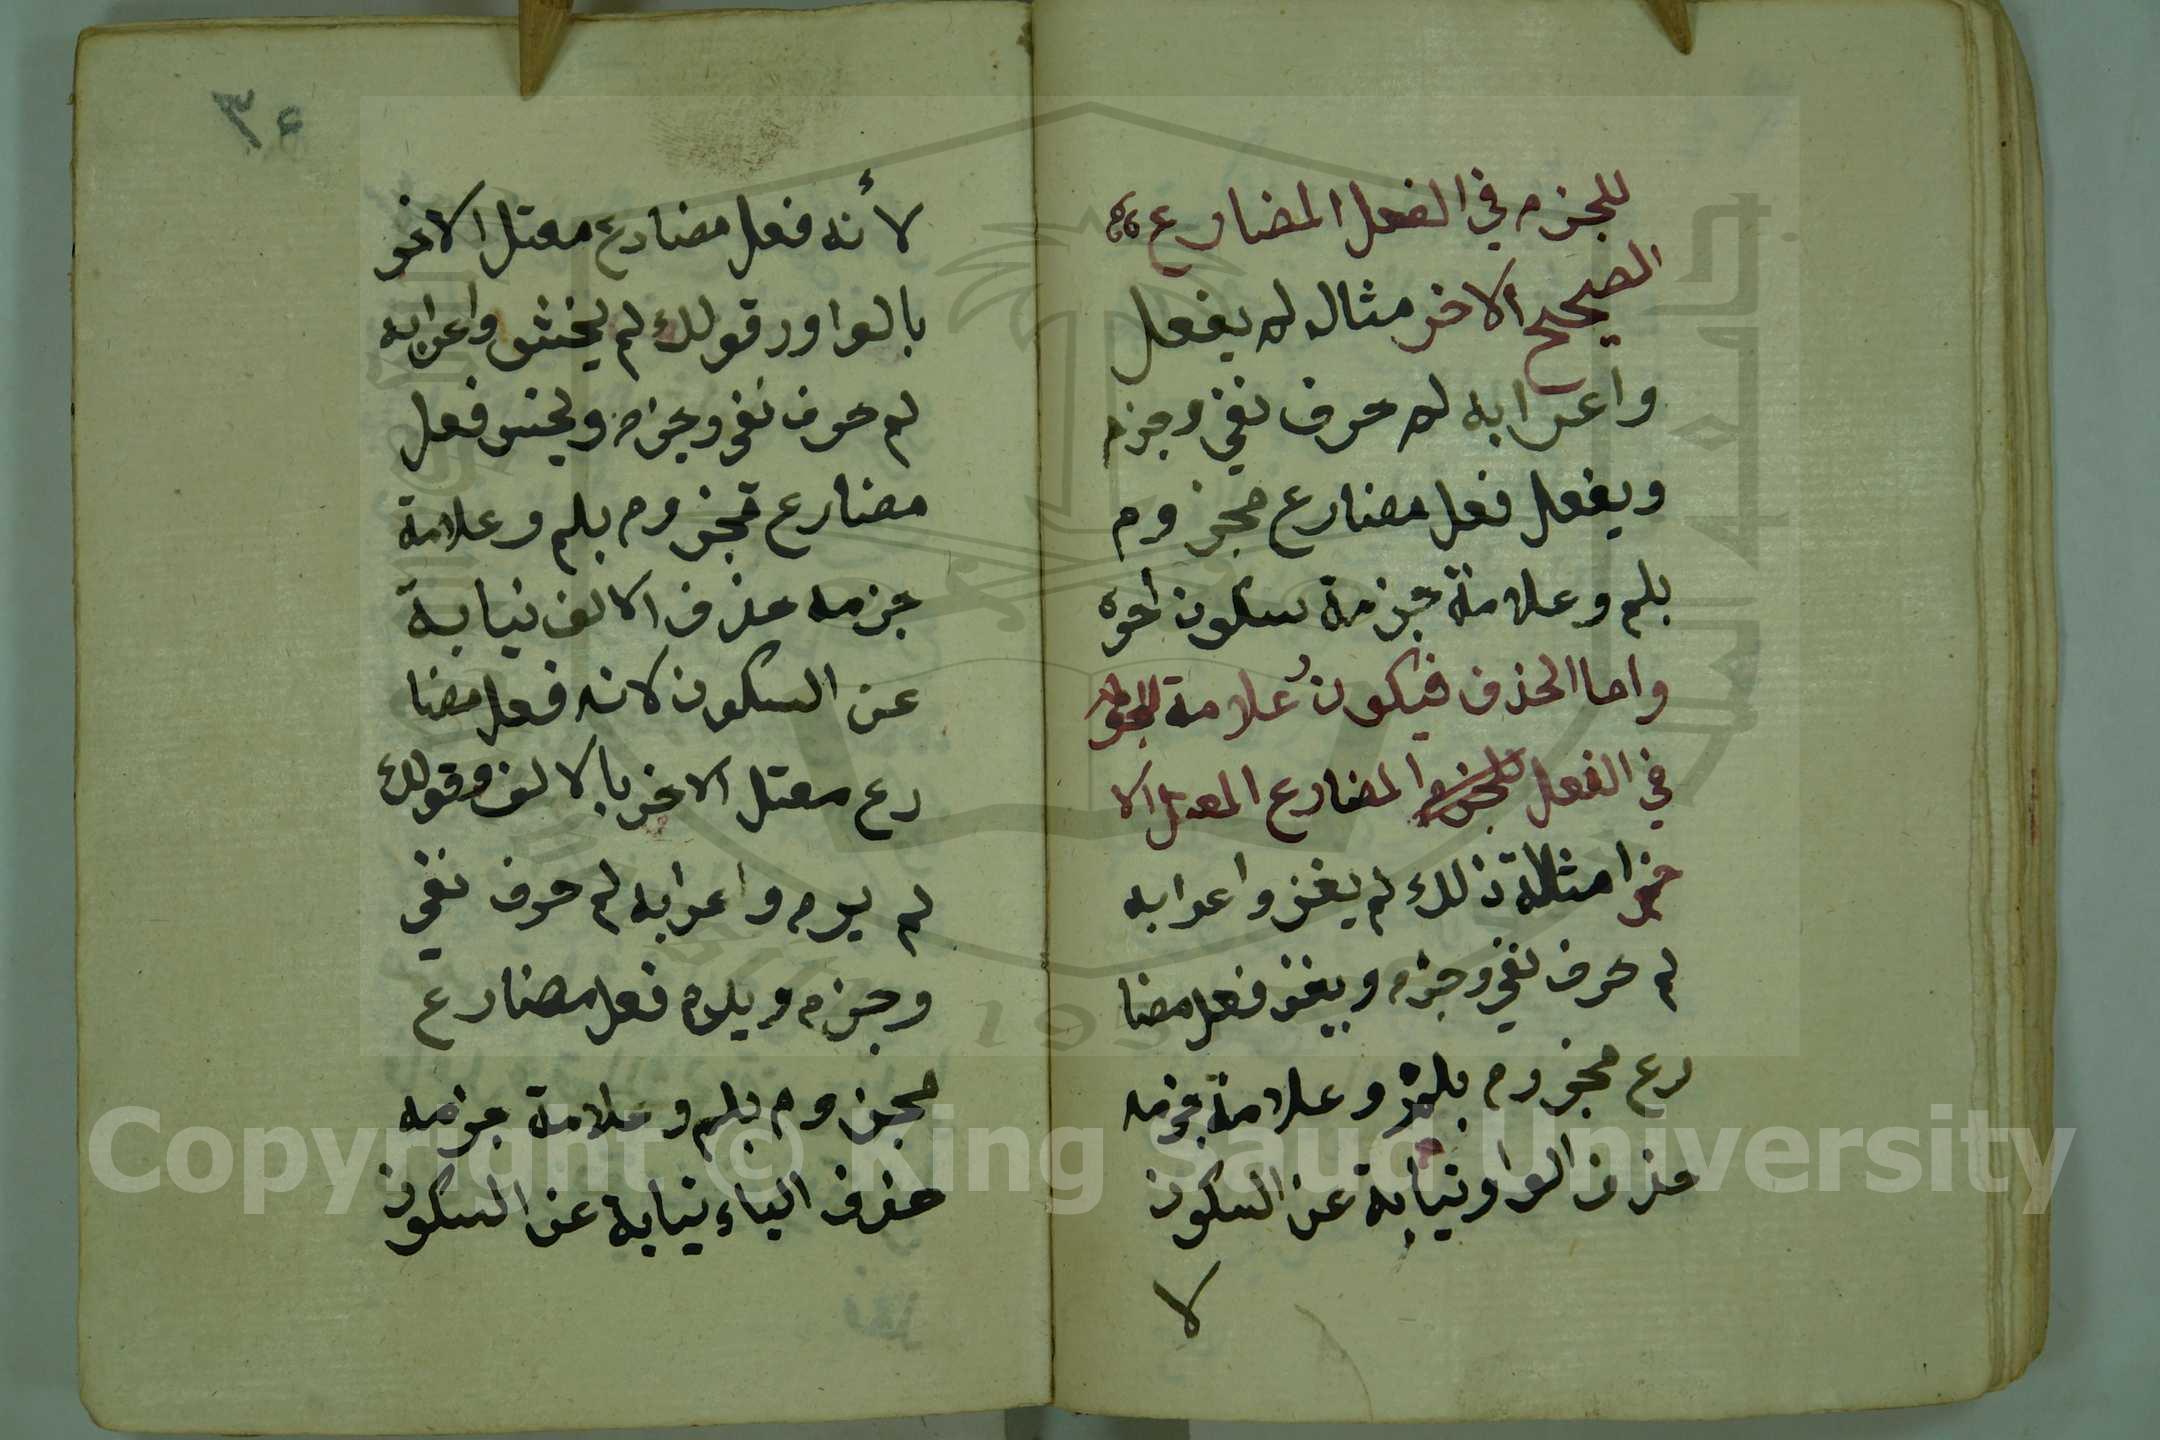 للجزم في الفعل المضارع
الصحيح الاخر مثال لم يفعل
واعرابه لم حرف نفي وجزم
ويفعل فعل مضارع مجزوم
بلم وعلامة جزمة سكون اخره
واما الحذف فيكون علامة للجزم
في الفعل المضارع المعتل الا
خر امثالة ذلك لم يغز واعرابه
لم حرف نفي وجزم ويغز فعل مضا
رع مجزوم بلم وعلامة جزمه
حذف الواو نيابة عن السكون
لا
٥٣
لأنه فعل مضارع معتل الاخر
بالواو وقولك لم يخش واعرابه
لم حرف نفي وجزم ويخش فعل
مضارع مجزوم بلم وعلامة
جزمه حذف الالف نيابة
عن السكون لانه فعل مضا
رع معتل الاخر بالالف وقولك
لم يرم واعرابه لم حرف نفي
وجزم ويرم فعل مضارع
مجزوم بلم وعلامة جزمه
حذف الياء نيابة عن السكون
Copyright © King Saud University